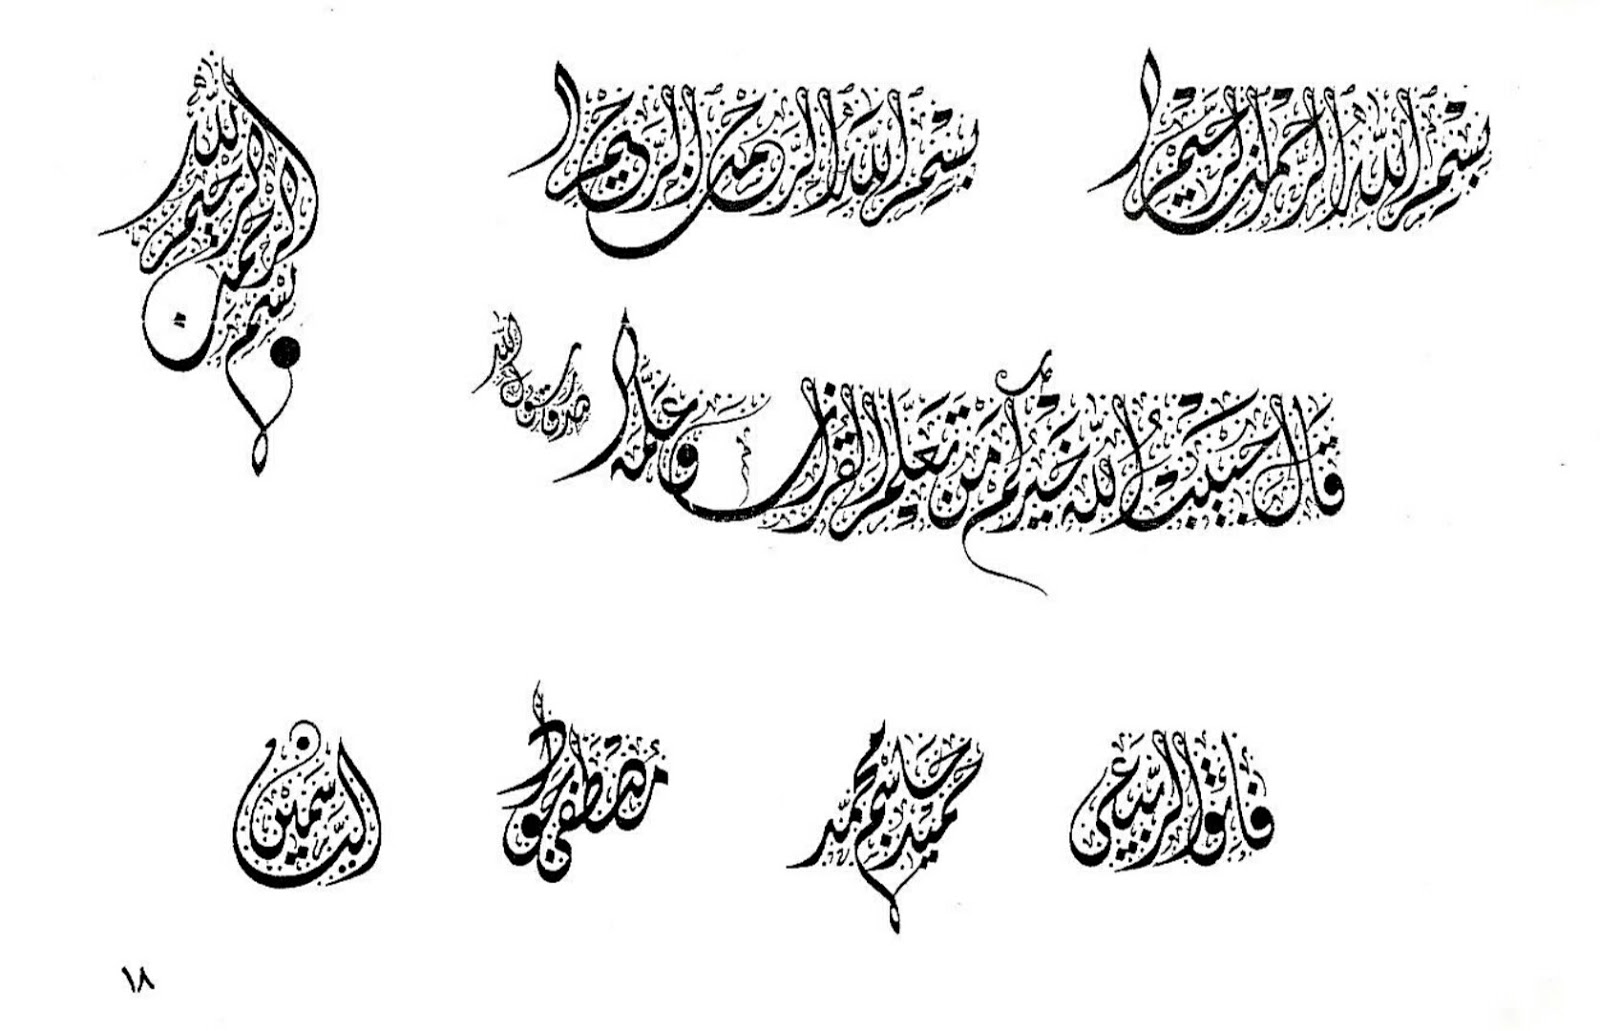 بسم الله الرحمن الرحيم
بسم الله الرحمن الرحيم
بسم الله الرحمن الرحيم
قال حبيب الله خيركم من تعلم القرآن وعلمه
صدق رسول الله
فائق الربيعي
حميد جاسم محمد
مصطفى جواد
الياسمين
١٨